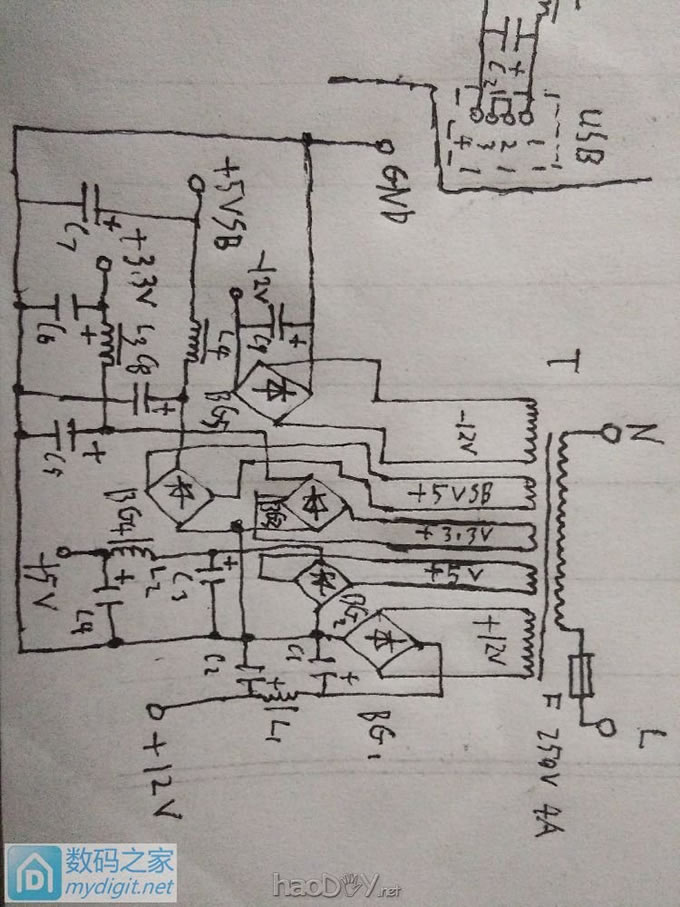 USB
1 2 3 4
C2
+
GND
+5VSB
-12V
C7
+
+3.3V
L3
C8
+
L4
C9
+
C6
+
BG5
C5
+
BG4
BG3
BG2
BG1
+5V
L2
+
C3
+
C4
C2
+
L1
C1
+
+12V
T
N
-12V
+5VSB
+3.3V
+5V
+12V
F 250V 4A
L
数码之家
mydigit.net
haoDIY.net